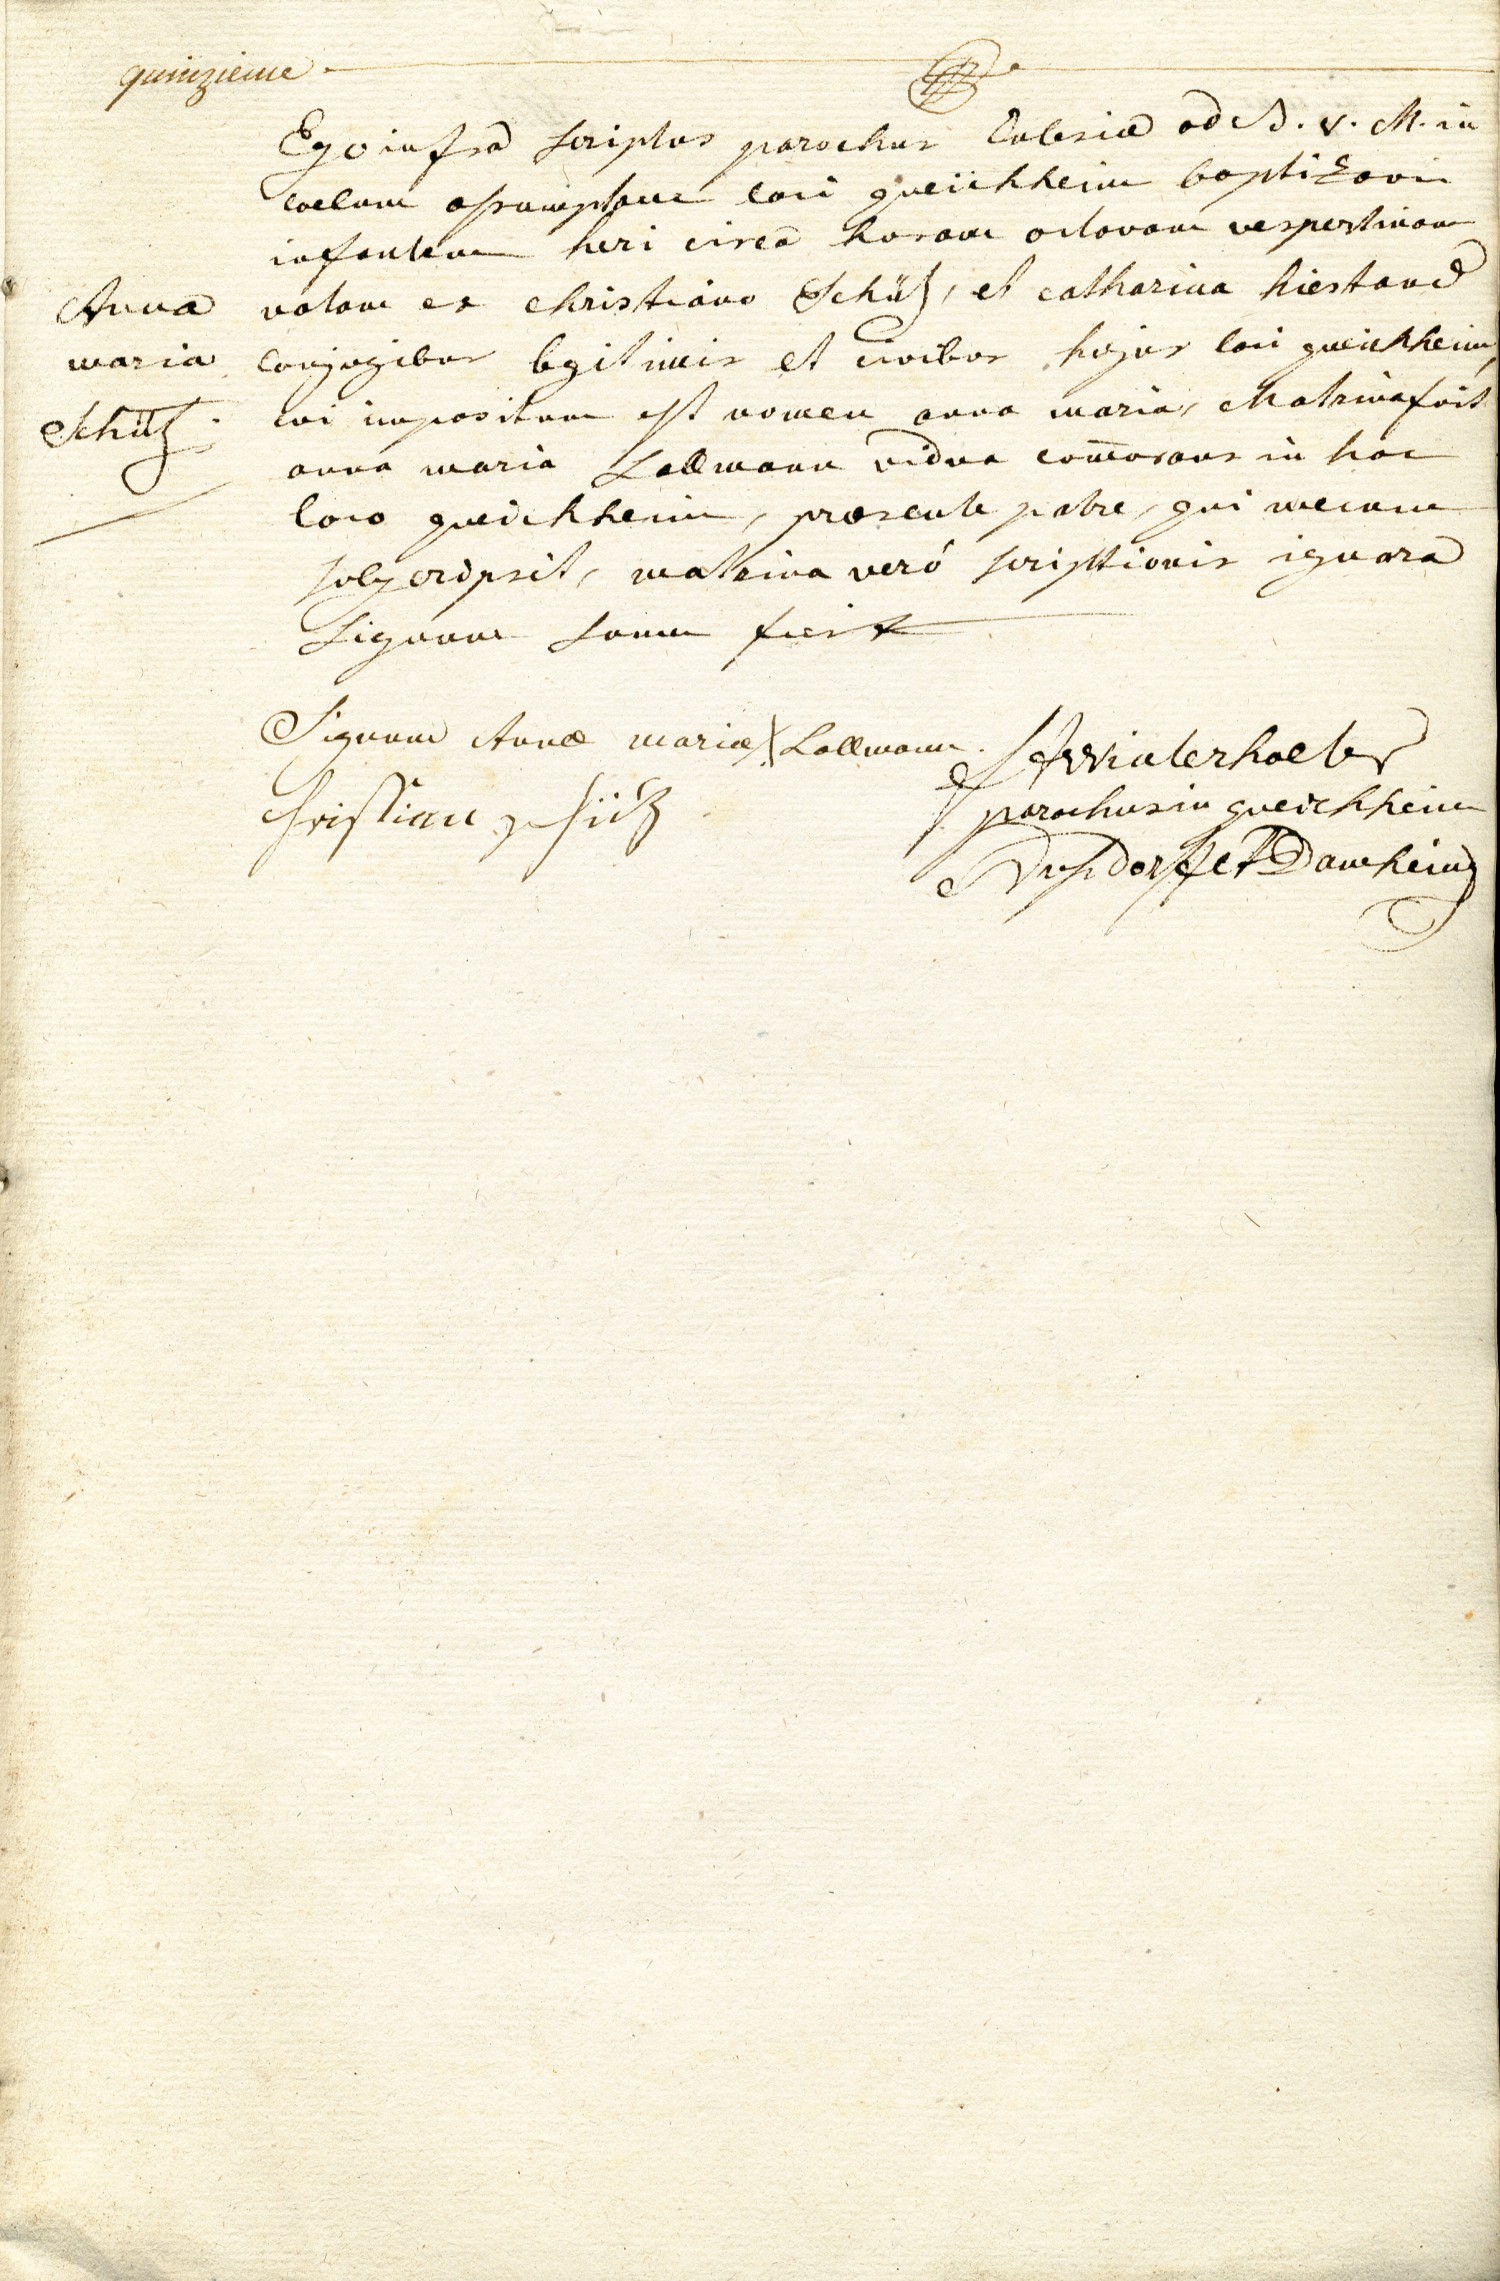 quinzieme
Ego infra scriptus parochus Eclesiæ ad B. V. M. in
coelum assumptam loci queichheim baptizavi
infantem heri circa horam octavam vespertinam
Anna natam ex christiano Schüz, et catharina hiestand
maria conjugibus legitimis et civibus hujus loci queichheim,
Schüz. cui impositum est nomen anna maria, Matrina fuit
anna maria Lallmann vidua com̄orans in hoc
loco queichheim, præsente patre, qui mecum
subscripsit, matrina veró scriptionis ignara
signum suum fecit
Signum Annæ mariæ X Lallmann.
Christian Schüz
Winterhalter
parochus in queichheim
et Damheim